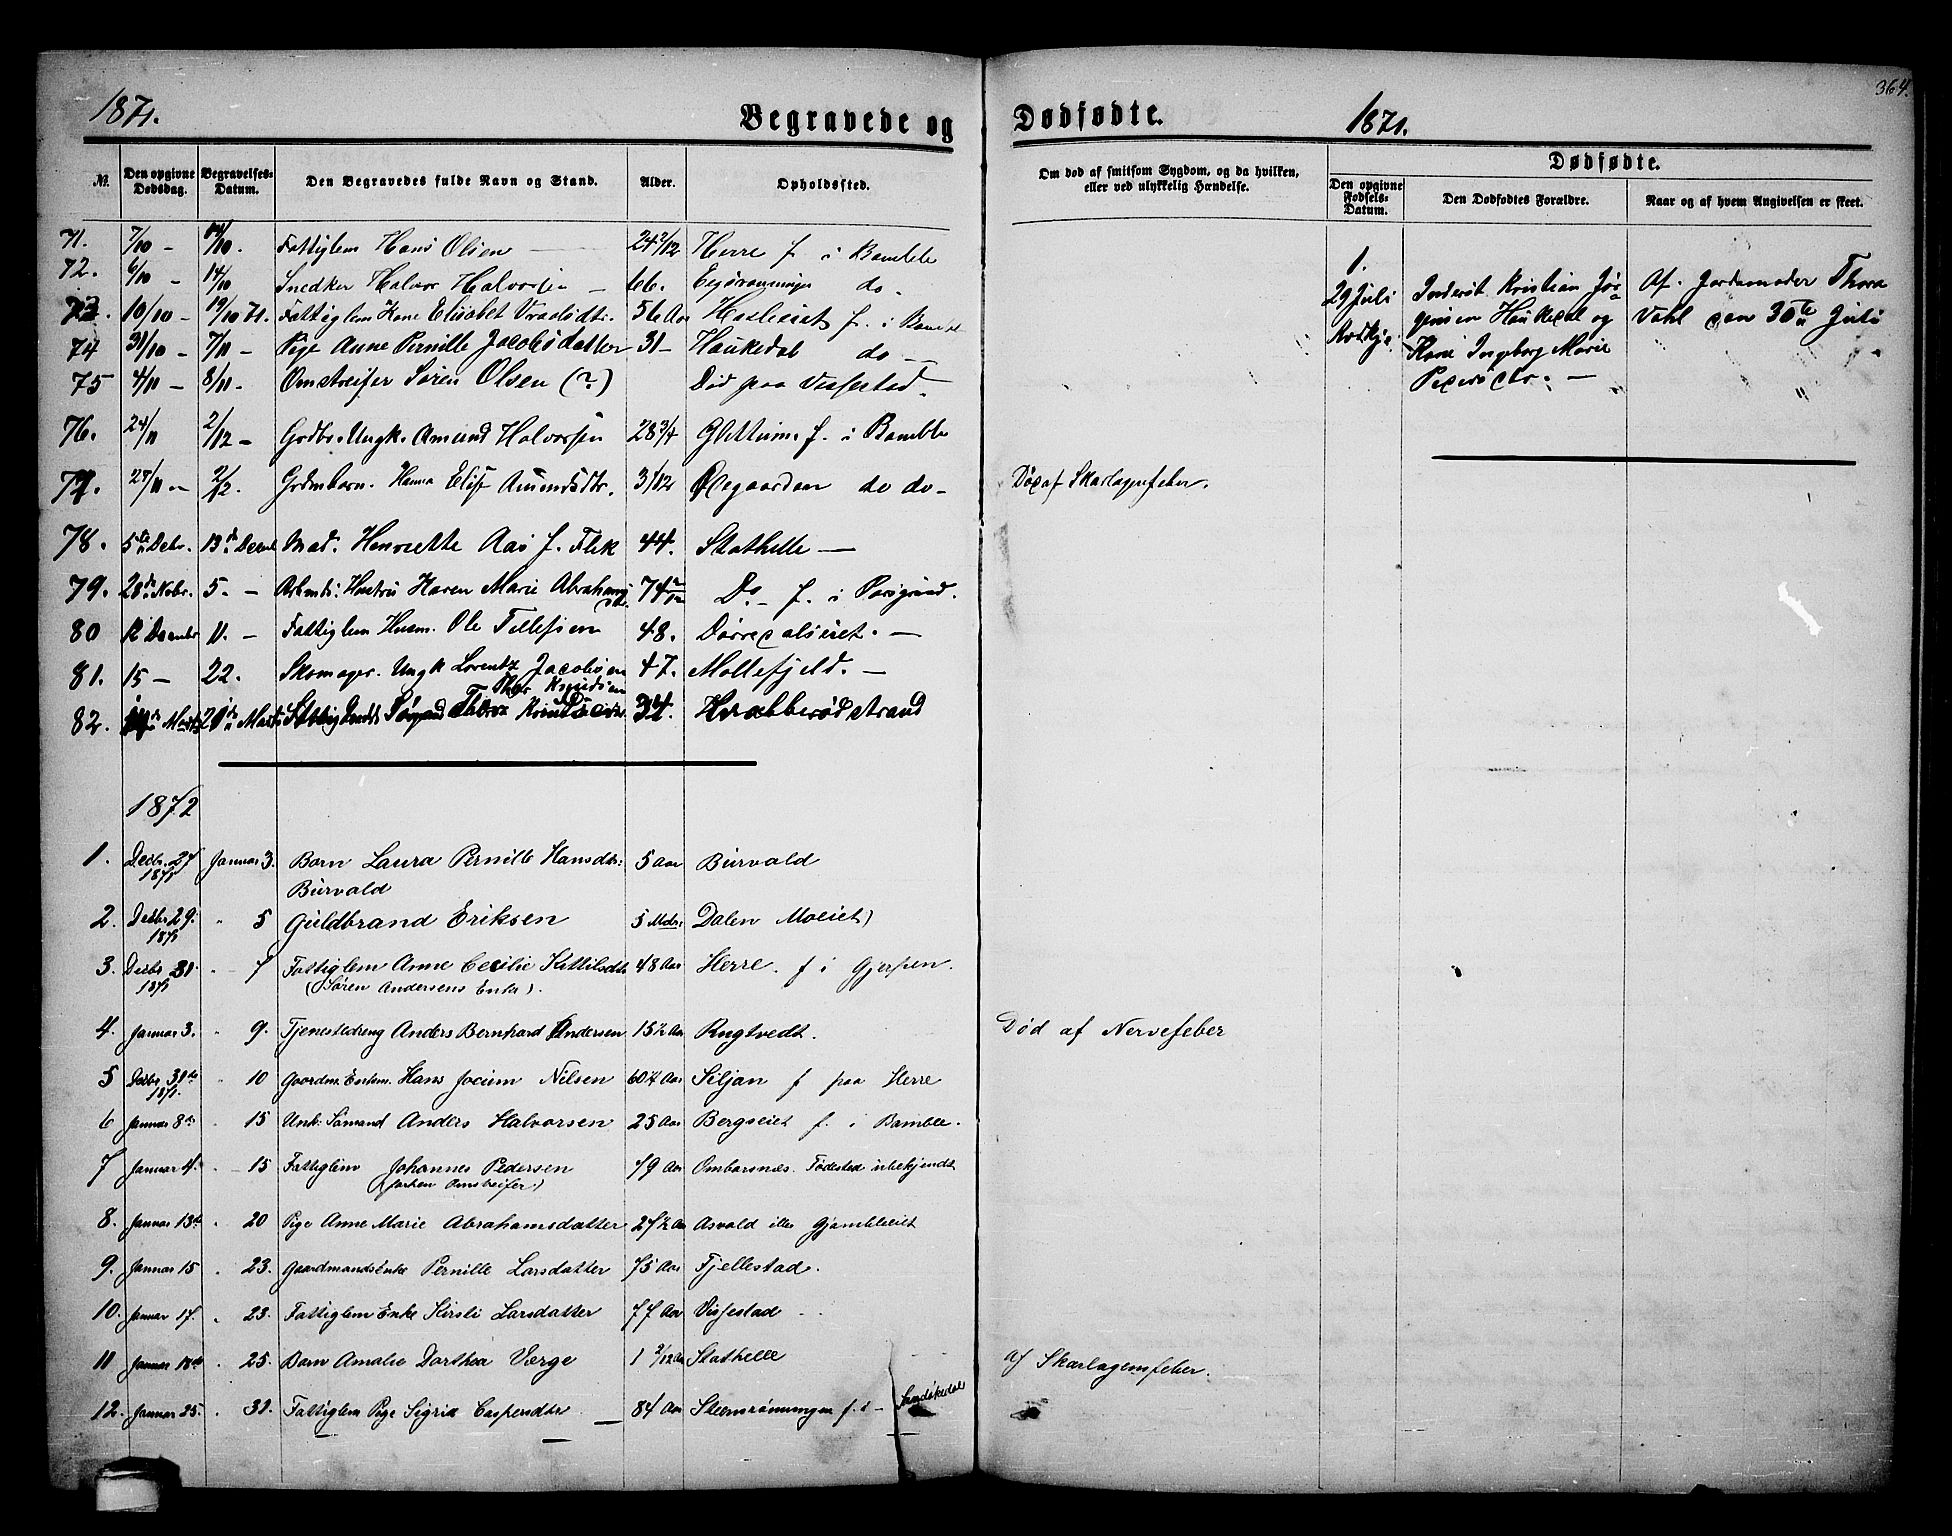 364.
1871. Begravede og Dødfødte. 1871.
№. Den opgivne Dødsdag. Begravelses-Datum. Den Begravedes fulde Navn og Stand. Alder. Opholdssted. Om død af smitsom Sygdom, og da hvilken, eller ved ulykkelig Hændelse. Dødfødte.
Den opgivne Fødsels-Datum. Den Dødfødtes Forældre. Naar og af hvem Angivelsen er skeet.
71. 7/10 - 14/10. Fattiglem Hans Olsen 24 2/12 Herre f. i Bamble
72. 6/10 - 14/10 Snedker Halvor Halvorsen - 66. do.
73. 10/10 - 19/10 71. Fattiglem Kone Elisabet 56 Aar f. i Bamble
74 31/10 - 7/11 - Pige Anne Pernille Jacobsdatter 31 - Haukedal do -
75 4/11 - 8/11. Omstreifer Søren Olsen (?) Død paa Vissestad -
76. 24/11 2/12 - Grdbr. Ungk. Amund Halvorsen 28 3/4 Glittum. f. i Bamble
77. 27/11 - 2/12. Grdmbarn. Hanna Elise Amundsdtr. 3 1/12 do do - Død af Skarlagensfeber.
78. 5te Decbr. 13de Decbr Mad. Henriette Aas f. Flik 44. Stathelle -
79. 28de Novbr. 5. - Arbmds. Hustru Karen Marie Abrahamsdtr. 74 Do - f. i Porsgrund.
80 12 Decembr 11. - Fattiglem Husm. Ole Tellefsen 48.
81. 15 - 22. Skomager. Ungk Lorentz Jacobsen 47. Mollefjeld. -
82. Marts 20de Marts 34. Hvalberødstrand
1.
29 Juli
Kristian Jørgensen Haukedal og
Kone Ingeborg Marie
Pedersdtr. -
Af Jordemoder Thora
Vahl den 30te Juli
1872
1. Decbr. 27 1871 Januar 3. Barn Laura Pernille Hansdtr: 5 Aar Burvald
Burvald
2. Decbr 29. 1871 " 5 Guldbrand Eriksen 5 Mdr. Dalen Moeiet)
3. Decbr 31. 1871 " 7 Fattiglem Anne Cecilie Kittilsdtr 48 Aar Herre. f i Gjerpen.
(Søren Andersens Enke).
4. Januar 3. " 9. Tjenestedreng Anders Bernhard Andersen 15 1/2 Aar Rugtvedt. Død af Nervefeber
5 Decbr 31te 1871. " 10 Gaardm. Enkem. Hans Jocum Nilsen 60 1/2 Aar Siljan f paa Herre
6 Januar 8de " 15 Unk: Sømand Anders Halvorsen 25 Aar Bergseiet f. i Bamble.
7 Januar 4. " 15 Fattiglem Johannes Pedersen 79 Aar Ombarsnæs. Fødested ubekjendt
(forhen Omstreifer.)
8. Januar 13de " 20 Pige Anne Marie Abrahamsdatter 27 1/2 Aar Asvald eller Gjømleeiet
9. Januar 15 " 23. Gaardmandsenke Pernille Larsdatter 75 Aar Fjellestad.
10. Januar 17. " 23. Fattiglem Enke Kirsti Larsdatter 77 Aar Vissestad
11 Januar 18de " 25. Barn Amalie Dorthea Værge 1 2/12 Aar Stathelle af Skarlagensfeber.
12. Januar 25. " 31. Fattiglem Pige Sigrid Caspersdtr 84 Aar Steensrønningen f. i Sandøkedal